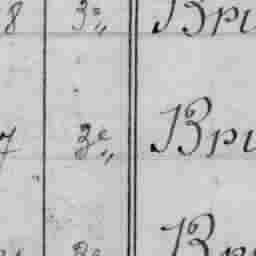 8 3e,, Bri
7 3e,, Bri
3e Bri